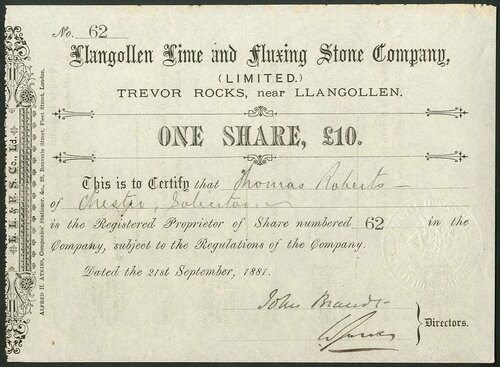 No. 62
Llangollen Lime and Fluxing Stone Company,
(LIMITED.)
TREVOR ROCKS, near LLANGOLLEN.
ONE SHARE, £10.
This is to Certify that Thomas Roberts
of Chester, Solicitor
is the Registered Proprietor of Share numbered 62 in the
Company, subject to the Regulations of the Company.
Dated the 21st September, 1881.
John Brandt
Directors.
L. L. & F. S. Co., Ld.
ALFRED H. ATKINS, Companies' Stationer, &c., 29, Bouverie Street, Fleet Street, London.